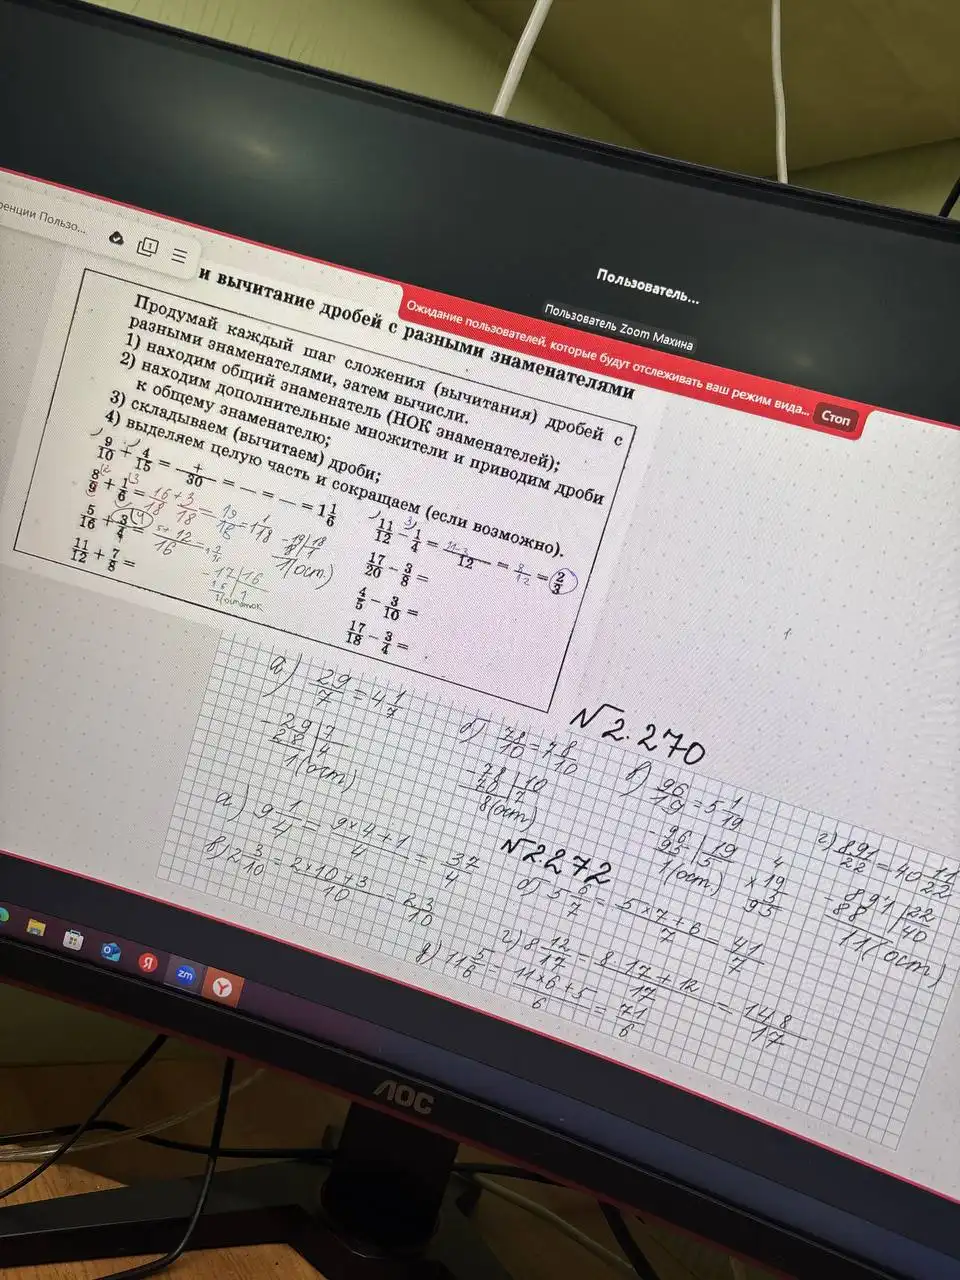 Пользователь...
Пользователь Zoom Махина
ренции Пользо...
Ожидание пользователей, которые будут отслеживать ваш режим вида...
Стоп
и вычитание дробей с разными знаменателями
Продумай каждый шаг сложения (вычитания) дробей с
разными знаменателями, затем вычисли.
1) находим общий знаменатель (НОК знаменателей);
2) находим дополнительные множители и приводим дроби
к общему знаменателю;
3) складываем (вычитаем) дроби;
4) выделяем целую часть и сокращаем (если возможно).
9/10 + 4/15 = +/30 = — = — = 1 1/6
8/9 + 1/6 = 16+3/18 = 19/18 = 1 1/18
19 18
1(ост)
5/16 + 3/4 =
17 16
16 1
1(остаток
11/12 + 7/8 =
11/12 - 1/4 = 11-3/12 = 8/12 = 2/3
17/20 - 3/8 =
4/5 - 3/10 =
17/18 - 3/4 =
№2.270
а) 29/7 = 4 1/7
- 29 7
28 4
1(ост)
б) 78/10 = 7 8/10
- 78 10
70 7
8(ост)
в) 96/19 = 5 1/19
- 96 19
95 5
1(ост)
4
× 19
5
95
г) 891/22 = 40 11/22
- 891 22
88 40
11(ост)
№2.272
а) 9 1/4 = 9×4+1/4 = 37/4
б) 5 6/7 = 5×7+6/7 = 41/7
в) 2 3/10 = 2×10+3/10 = 23/10
г) 8 12/17 = 8·17+12/17 = 148/17
11 5/6 = 11×6+5/6 = 71/6
zm
AOC